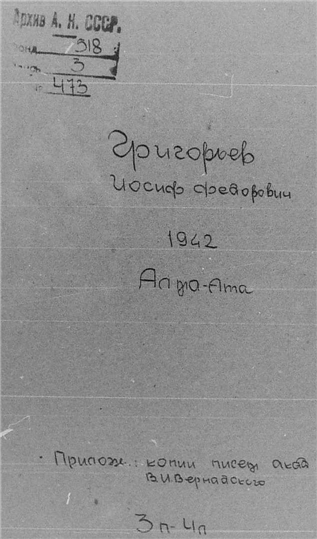 Архив А. Н. СССР.
фонд 518
опись 3
473
Григорьев
Иосиф Федорович
1942
Алма-Ата
Прилож.: копии писем акад
В.И.Вернадского
3п-4п